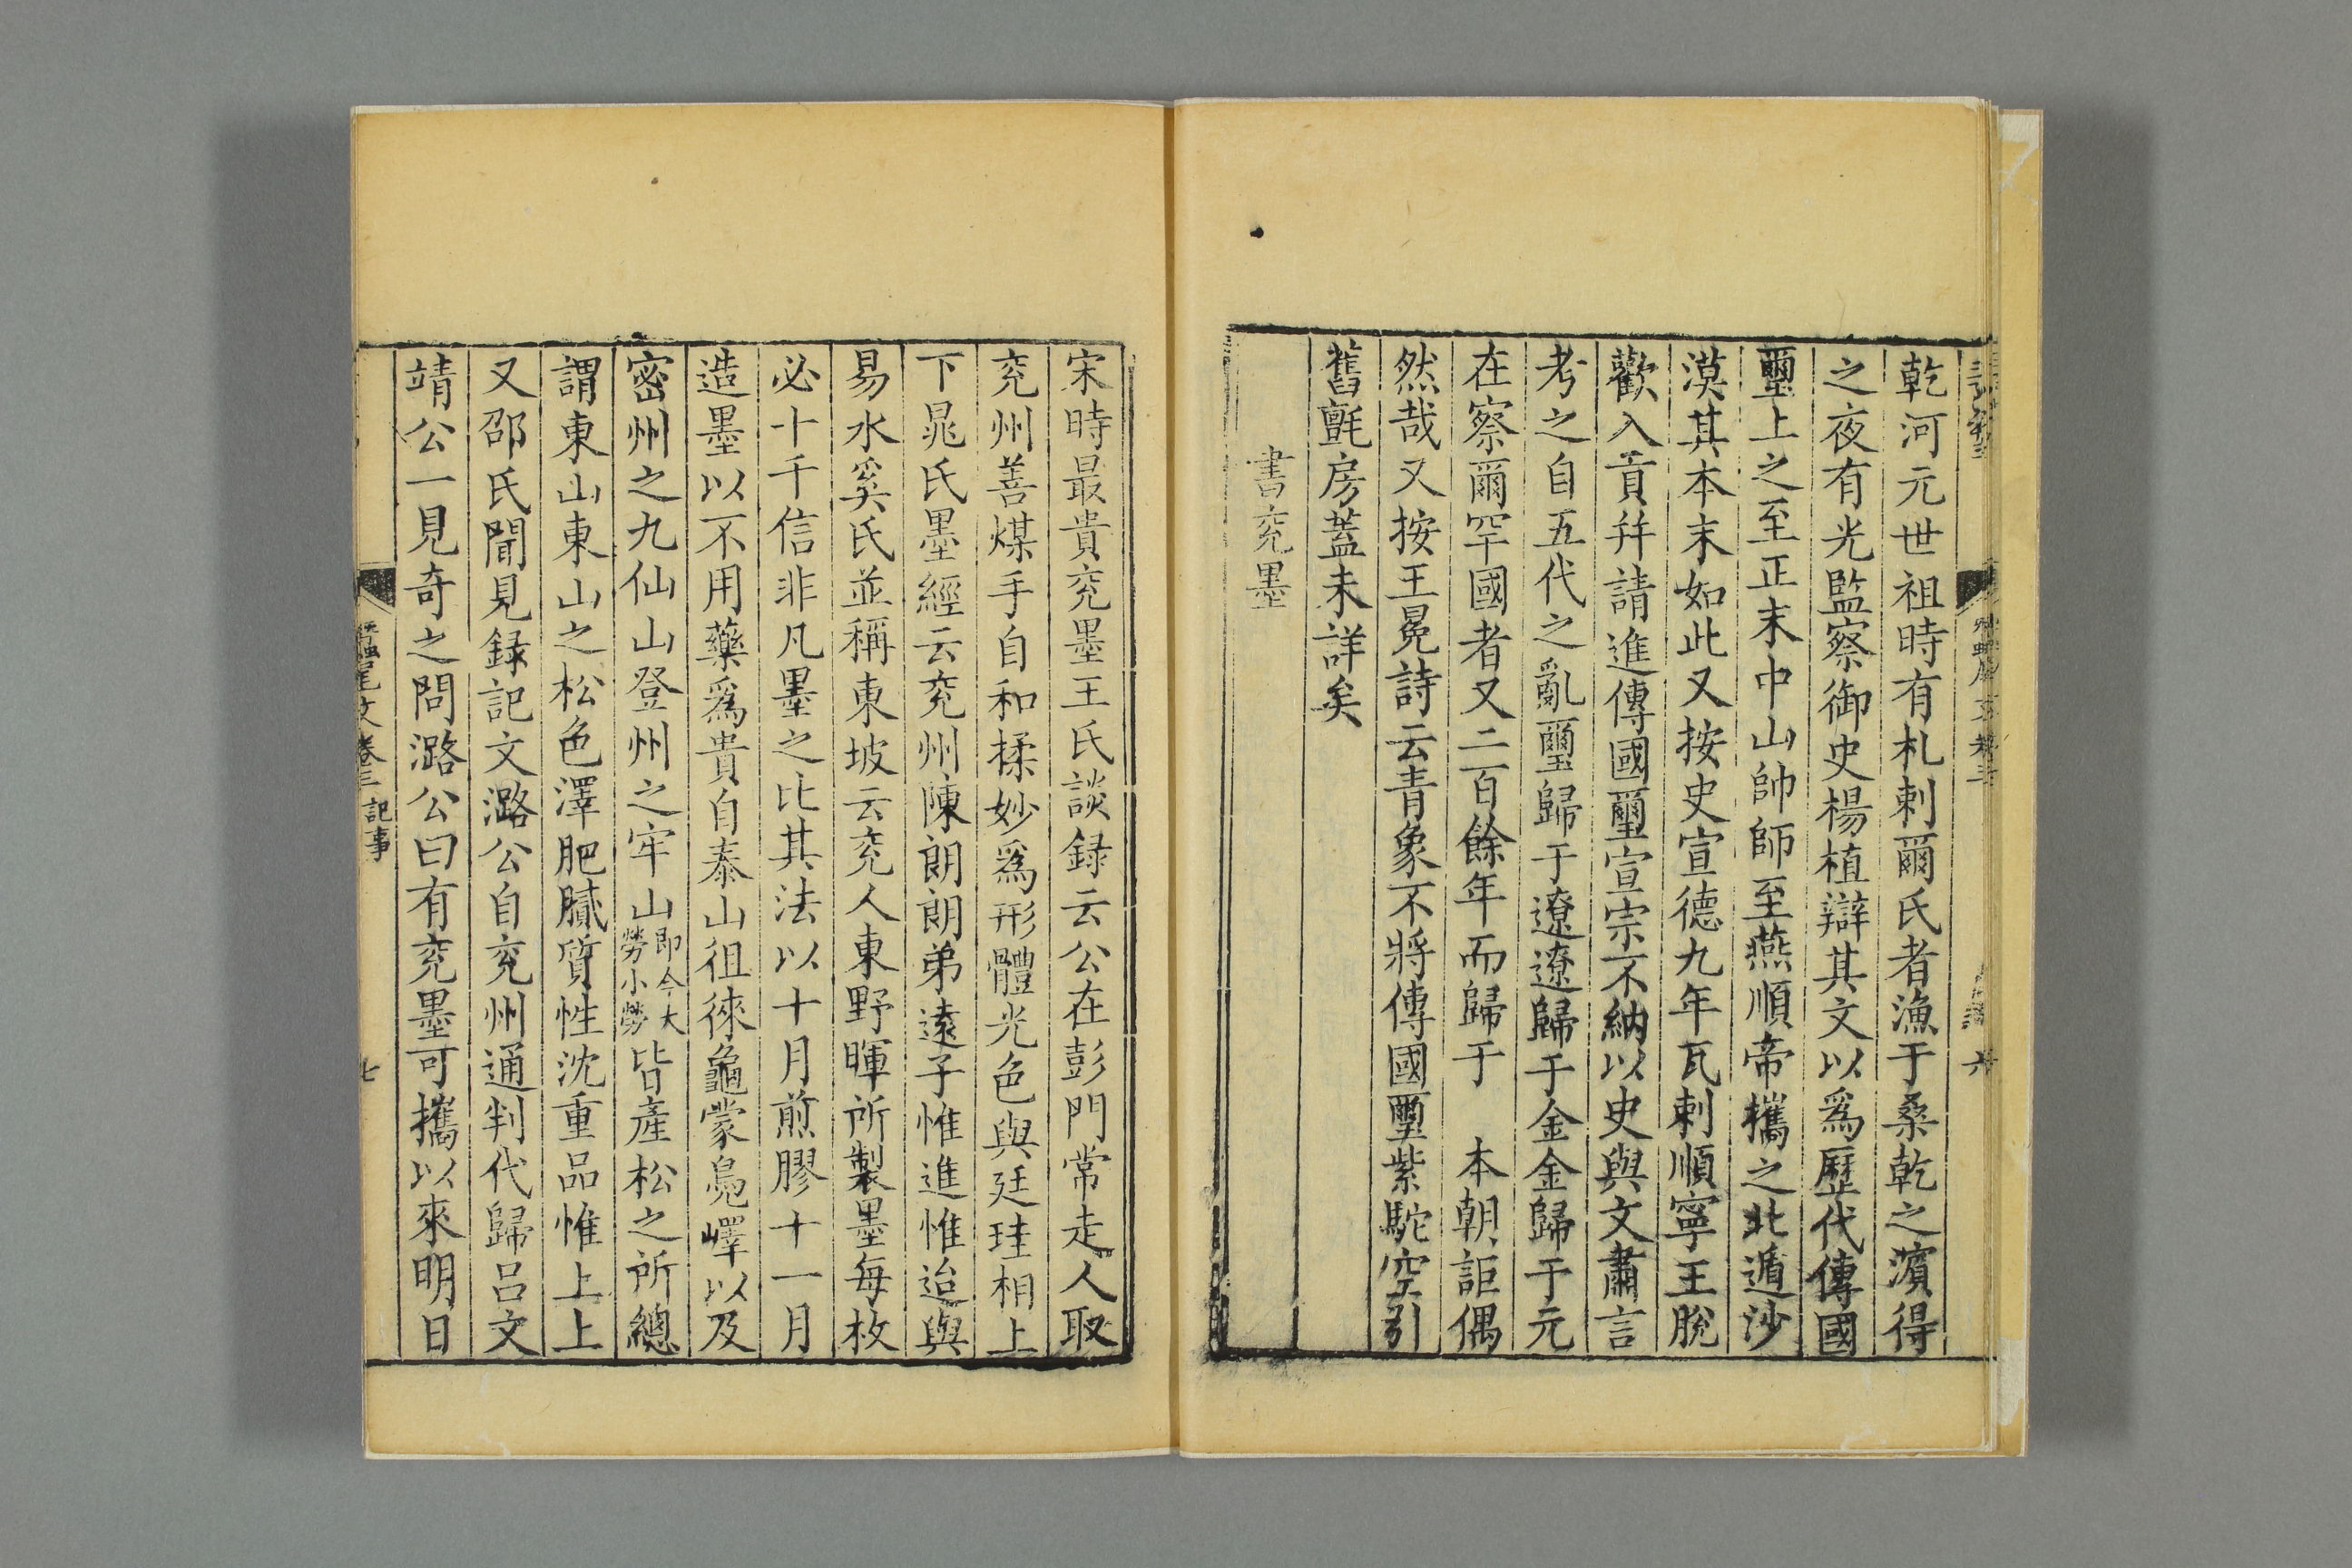 乾河元世祖時有札剌爾氏者漁于桑乾之濵得
之夜有光監察御史楊植辯其文以爲歷代傳國
璽上之至正末中山帥師至燕順帝攜之北遁沙
漠其本末如此又按史宣德九年瓦剌順寧王脫
歡入貢幷請進傳國璽宣宗不納以史與文肅言
考之自五代之亂璽歸于遼遼歸于金金歸于元
在察爾罕國者又二百餘年而歸于　本朝詎偶
然哉又按王冕詩云青象不將傳國璽紫駝空引
舊氈房蓋未詳矣
書兖墨
宋時最貴兖墨王氏談録云公在彭門常走人取
兖州善煤手自和揉妙爲形體光色與廷珪相上
下晁氏墨經云兖州陳朗朗弟遠子惟進惟迨與
易水奚氏並稱東坡云兖人東野暉所製墨每枚
必十千信非凡墨之比其法以十月煎膠十一月
造墨以不用藥爲貴自泰山徂徠龜蒙鳧嶧以及
密州之九仙山登州之牢山即今大勞小勞皆產松之所總
謂東山東山之松色澤肥膩質性沈重品惟上上
又邵氏聞見録記文潞公自兖州通判代歸呂文
靖公一見奇之問潞公曰有兖墨可攜以來明日
蠶尾文卷三 記事
七